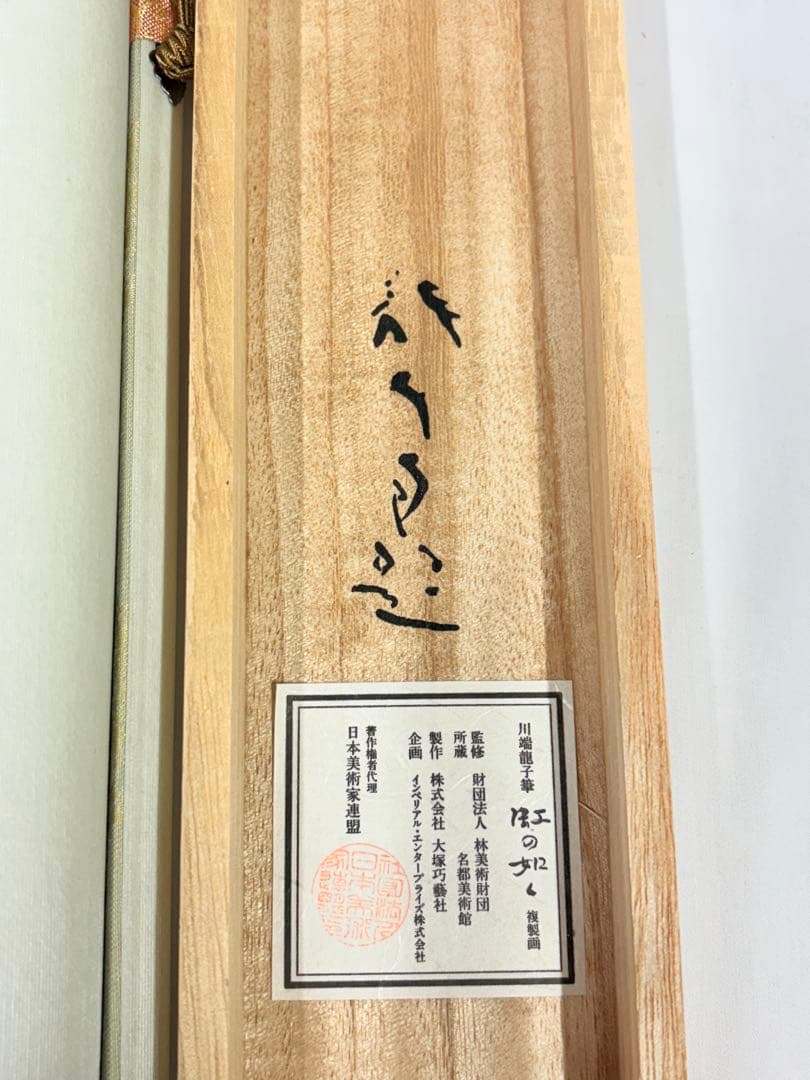 川端龍子筆 虹の如く 複製画
監修 財団法人 林美術財団
所蔵 名都美術館
製作 株式会社 大塚巧藝社
企画 インペリアル・エンタープライズ株式会社
著作権者代理
日本美術家連盟